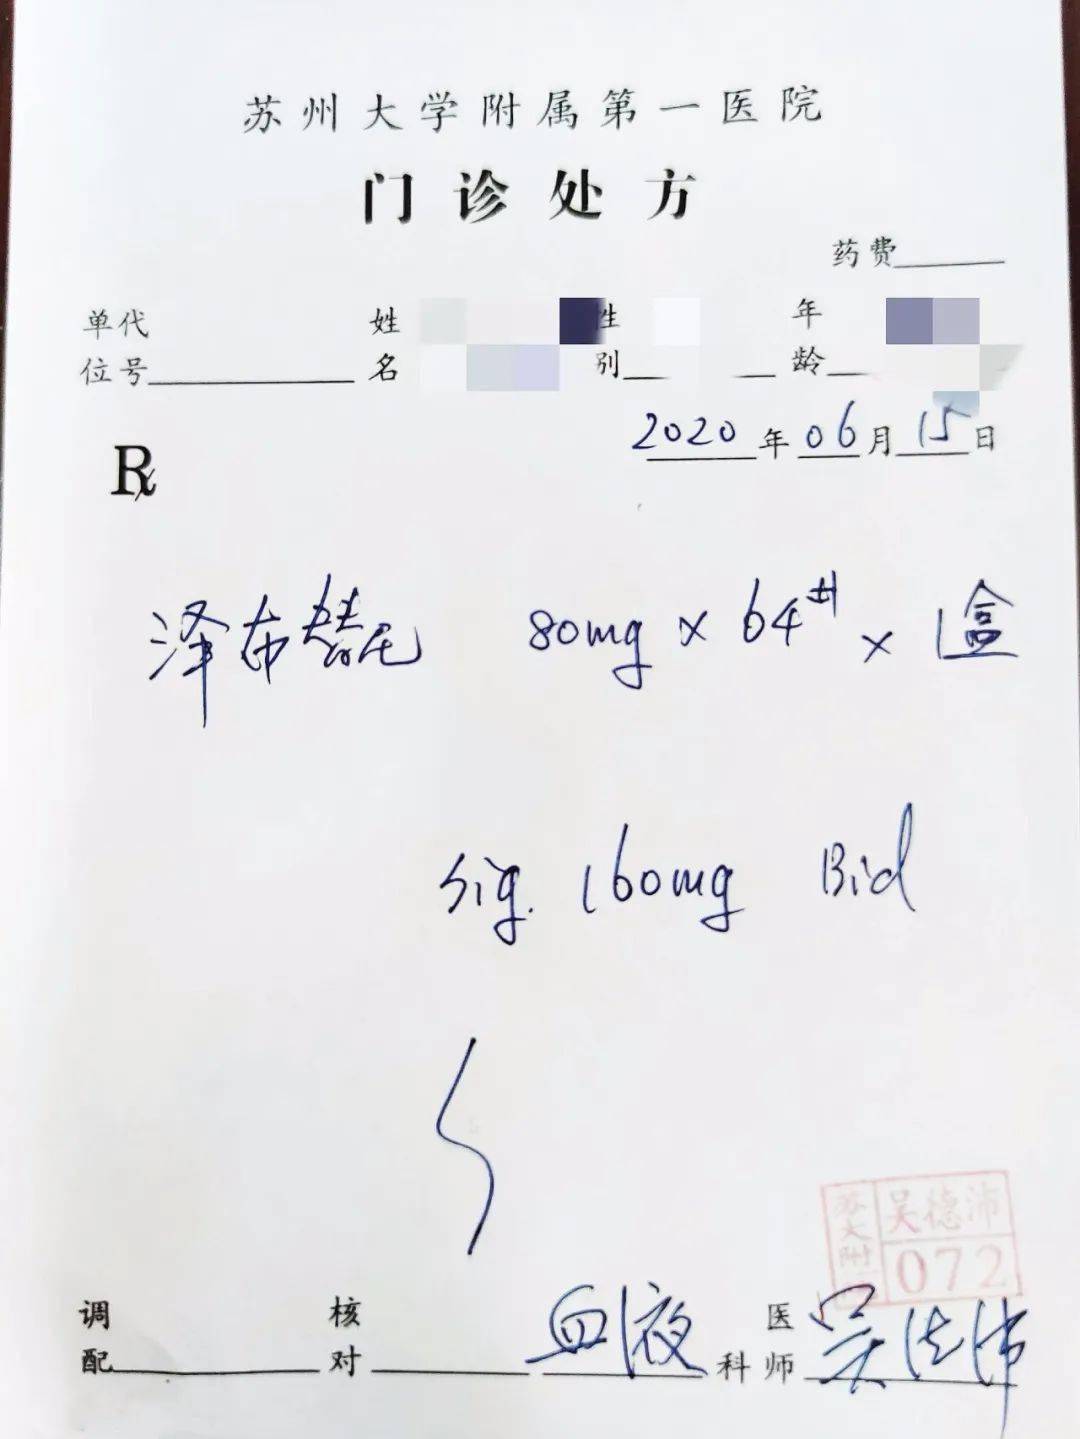 苏州大学附属第一医院
门诊处方
药费
单位代号 姓名 性别 年龄
2020年06月15日
R
泽布替尼 80mg × 64# × 1盒
Sig. 160mg Bid
苏大附 吴德沛
072
调配 核对 血液科 医师 吴德沛